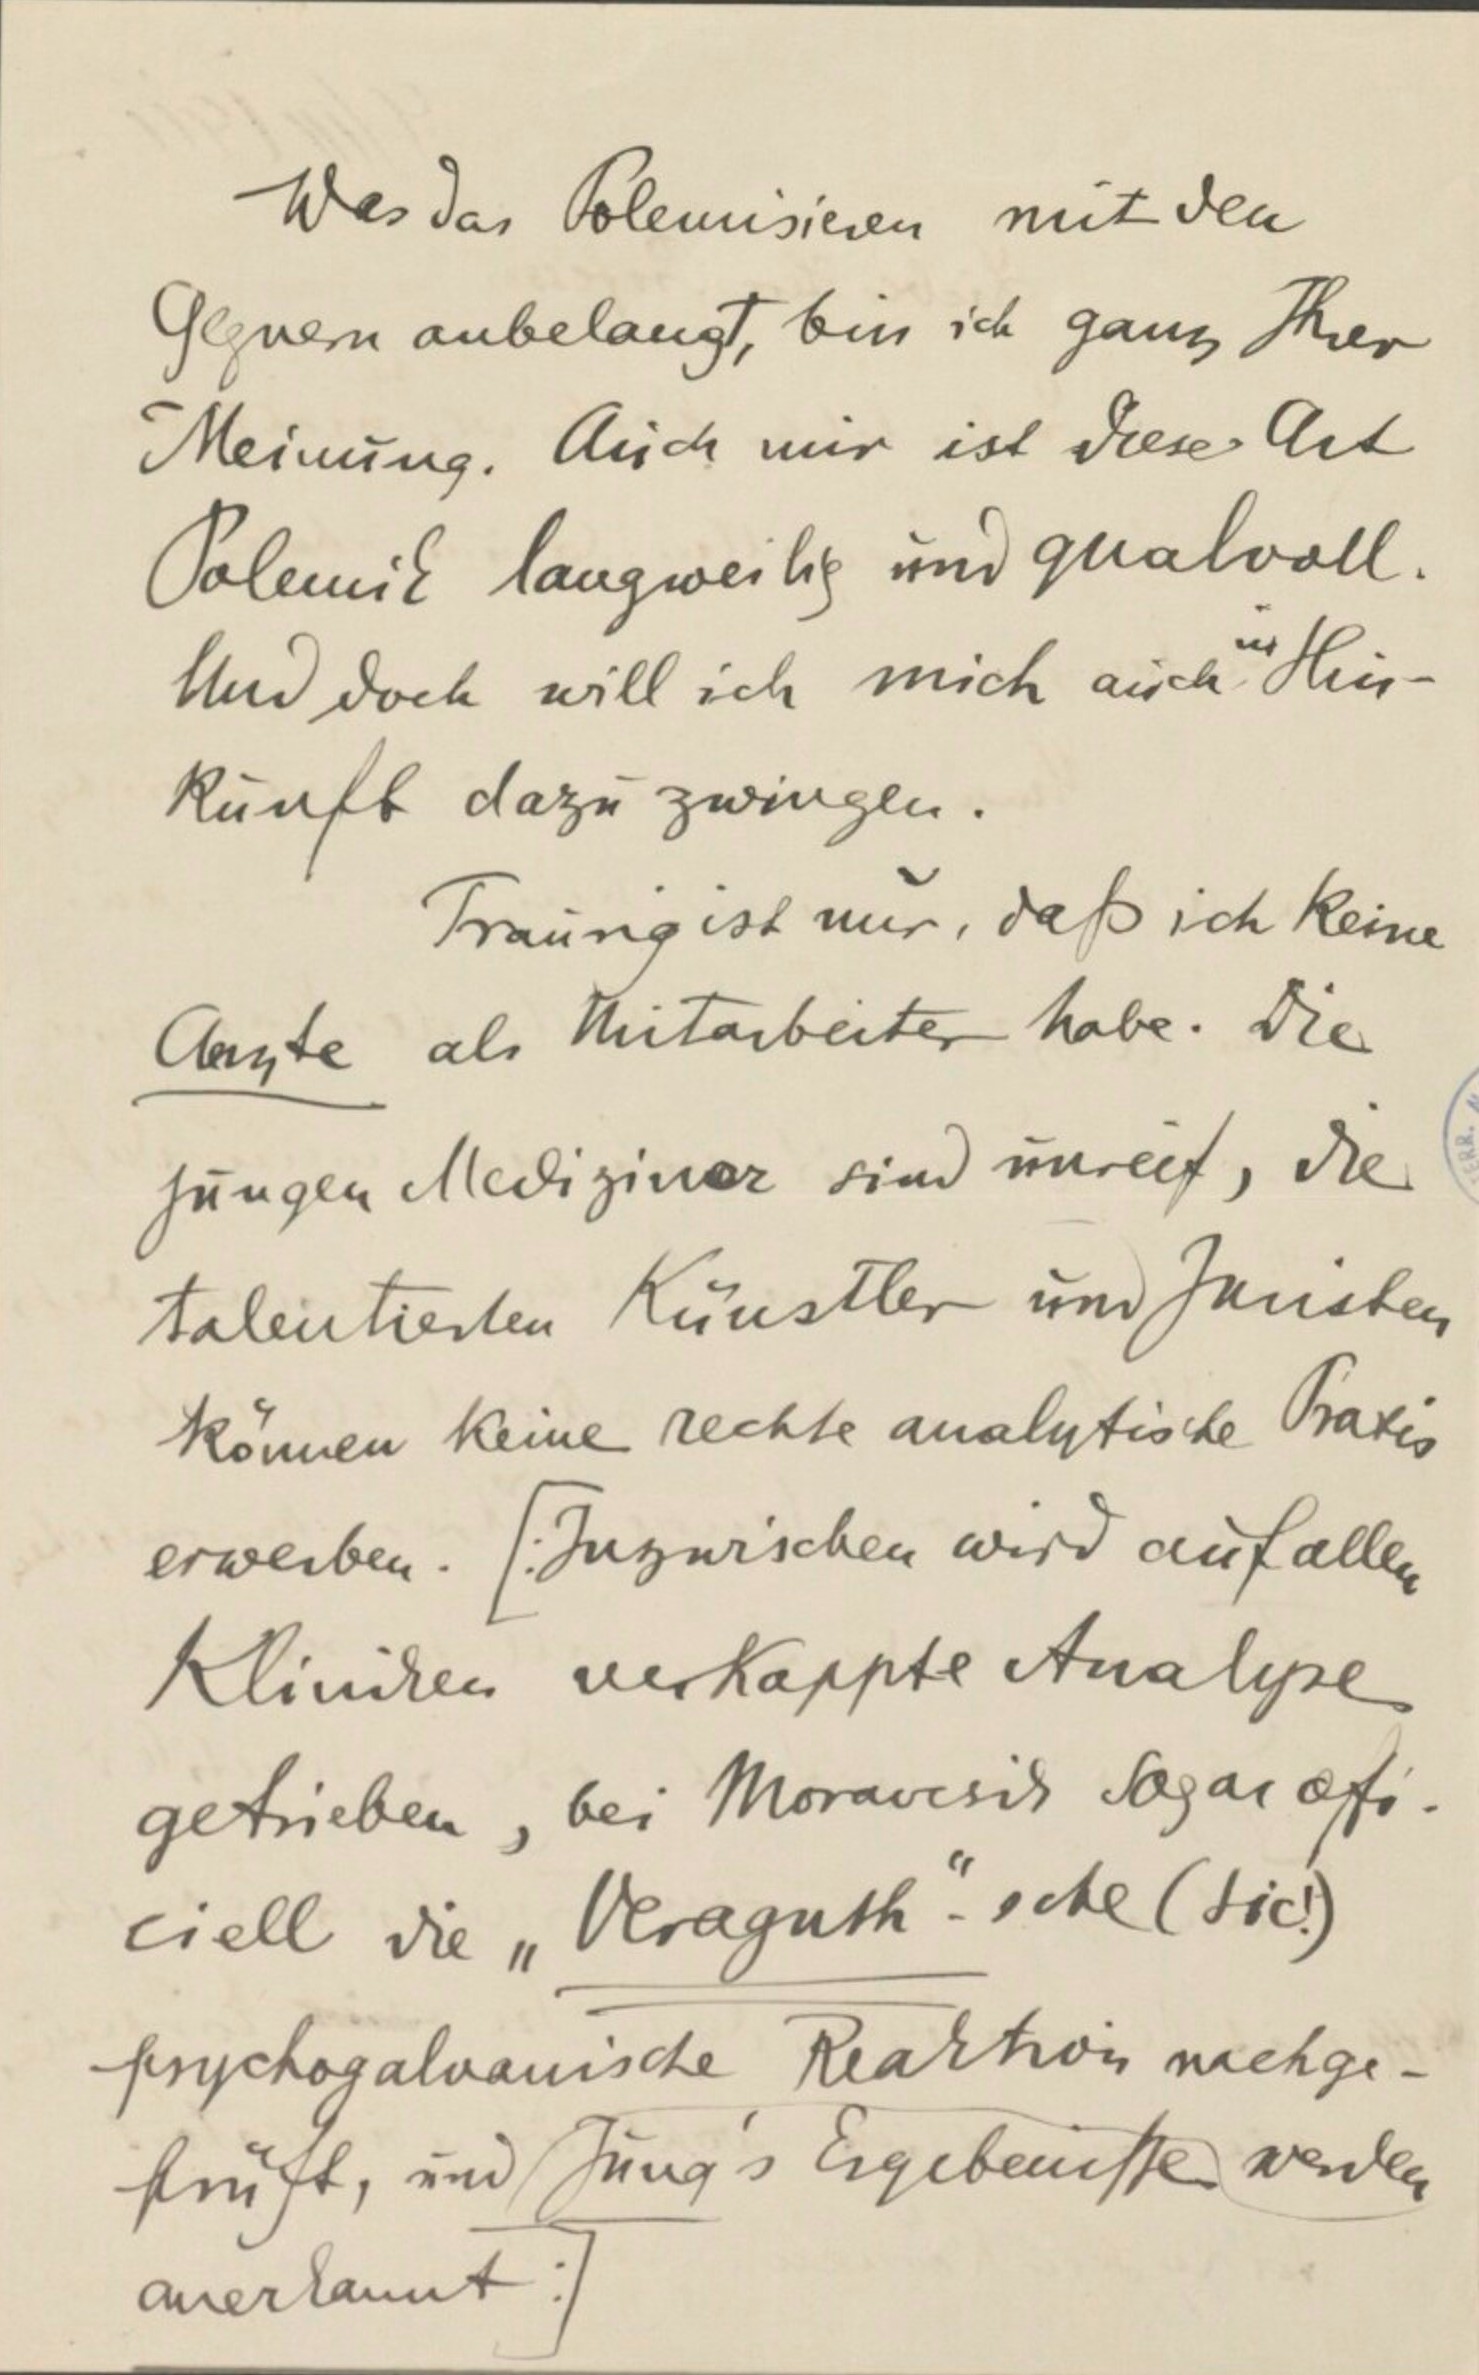 Was das Polemisieren mit den
Gegnern anbelangt, bin ich ganz Ihrer
Meinung. Auch mir ist diese Art
Polemik langweilig und qualvoll.
Und doch will ich mich auch in Hin-
kunft dazu zwingen.
Traurig ist nur, daß ich keine
Aerzte als Mitarbeiter habe. Die
jungen Mediziner sind unreif, die
talentierten Künstler und Juristen
können keine rechte analytische Praxis
erwerben. [:Inzwischen wird auf allen
Kliniken verkappte Analyse
getrieben, bei Moravcsik sogar offi-
ciell die „Veraguth“-sche (sic!)
psychogalvanische Reaktion nachge-
prüft, und Jung's Ergebnisse werden
anerkannt:]